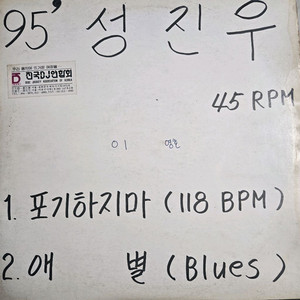 95' 성진우
전국DJ연합회
45 RPM
이 영훈
1. 포기하지마 (118 BPM)
2. 애 별 (Blues)